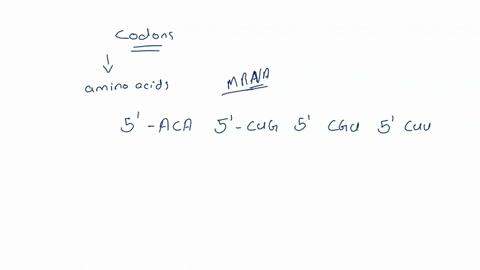 Codons
amino acids mRNA
5' - ACA 5' - CUG 5' CGU 5' CUU